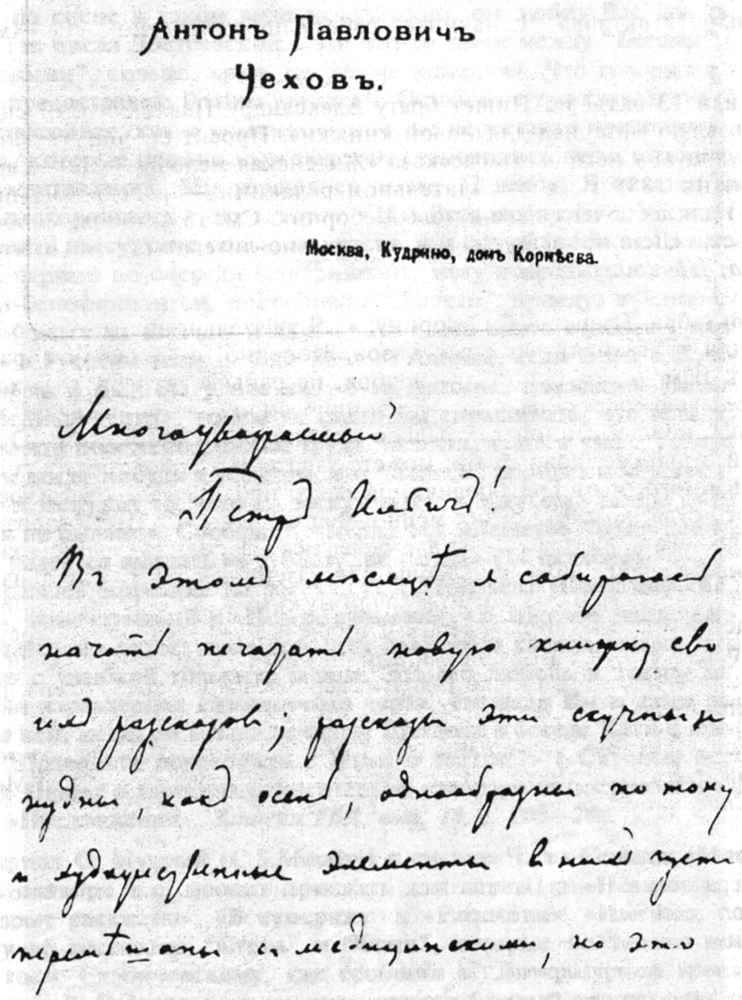 Антонъ Павловичъ
Чеховъ.
Москва, Кудрино, домъ Корнѣева.
Многоуважаемый
Петръ Ильичъ!
Въ этомъ мѣсяцѣ я собираюсь
начать печатать новую книжку сво
ихъ разсказовъ; разсказы эти скучны и
нудны, какъ осень, однообразны по тону
и художественные элементы в нихъ густо
перемѣшаны съ медицинскими, но это